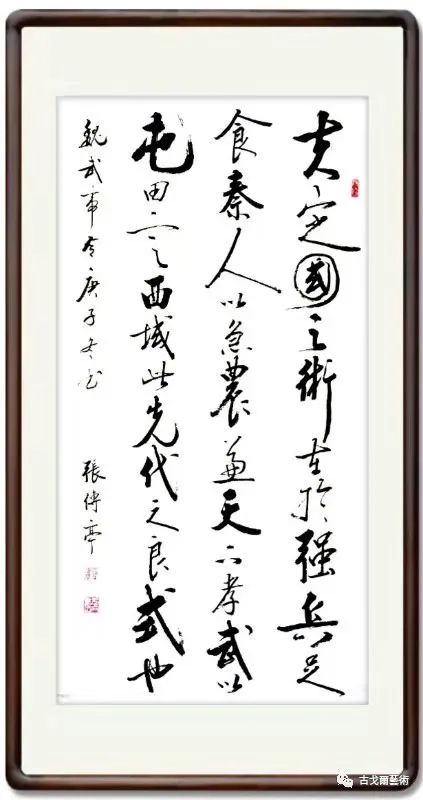 夫定國之術在於强兵足
食秦人以急農兼天下孝武以
屯田定西域此先代之良式也
魏武帝令庚子冬书
張傳亭
古戈爾藝術